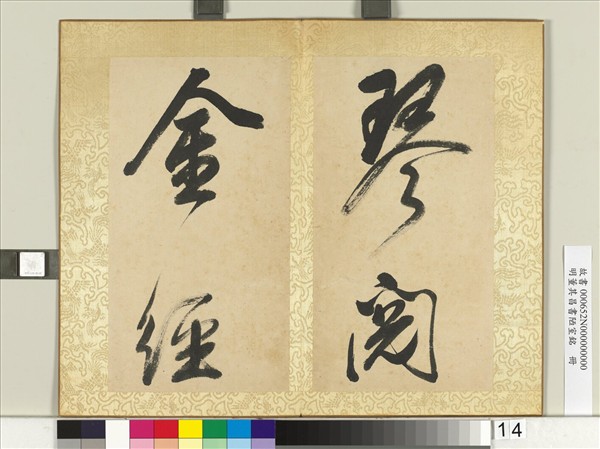 琴閱
金經
故書000652N000000000
明董其昌書陋室銘　冊
14